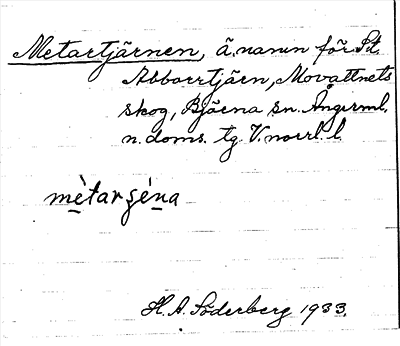 Metartjärnen, ä. namn för St.
Abborrtjärn, Movattnets
skog, Björna sn. Ångerml.
n. doms. tg. V. norrl. l.
mètarṣéna
H. A. Söderberg 1933.